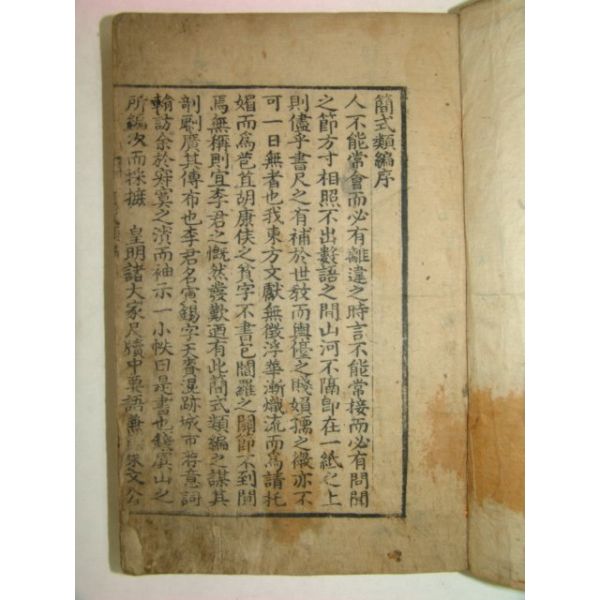 簡式類編序
人不能常會而必有離違之時言不能常接而必有問聞
之節方寸相照不出數語之間山河不隔卽在一紙之上
則儘乎書尺之有補於世敎而輿儓之賤娟孺之微亦不
可一日無者也我東方文獻無徵浮華漸熾流而爲請托
媚而爲苞苴胡康侯之貧字不書包閻羅之關節不到間
焉無稱則宜李君之慨然發歎迺有此簡式類編之謀其
剞劂廣其傳布也李君名寅錫字天賚混跡城市著意詞
翰訪余於寂寞之濱而袖示一小帙曰是書也錢虞山之
所編次而採摭 皇明諸大家尺牘中要語兼 朱文公